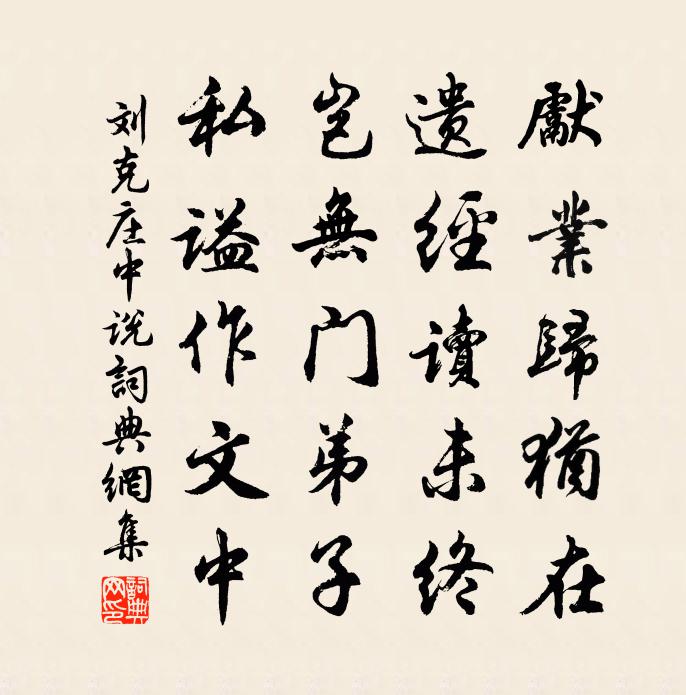 獻業歸猶在
遺經讀未終
豈無门弟子
私謚作文中
刘克庄中说詞典網集
詞典网印